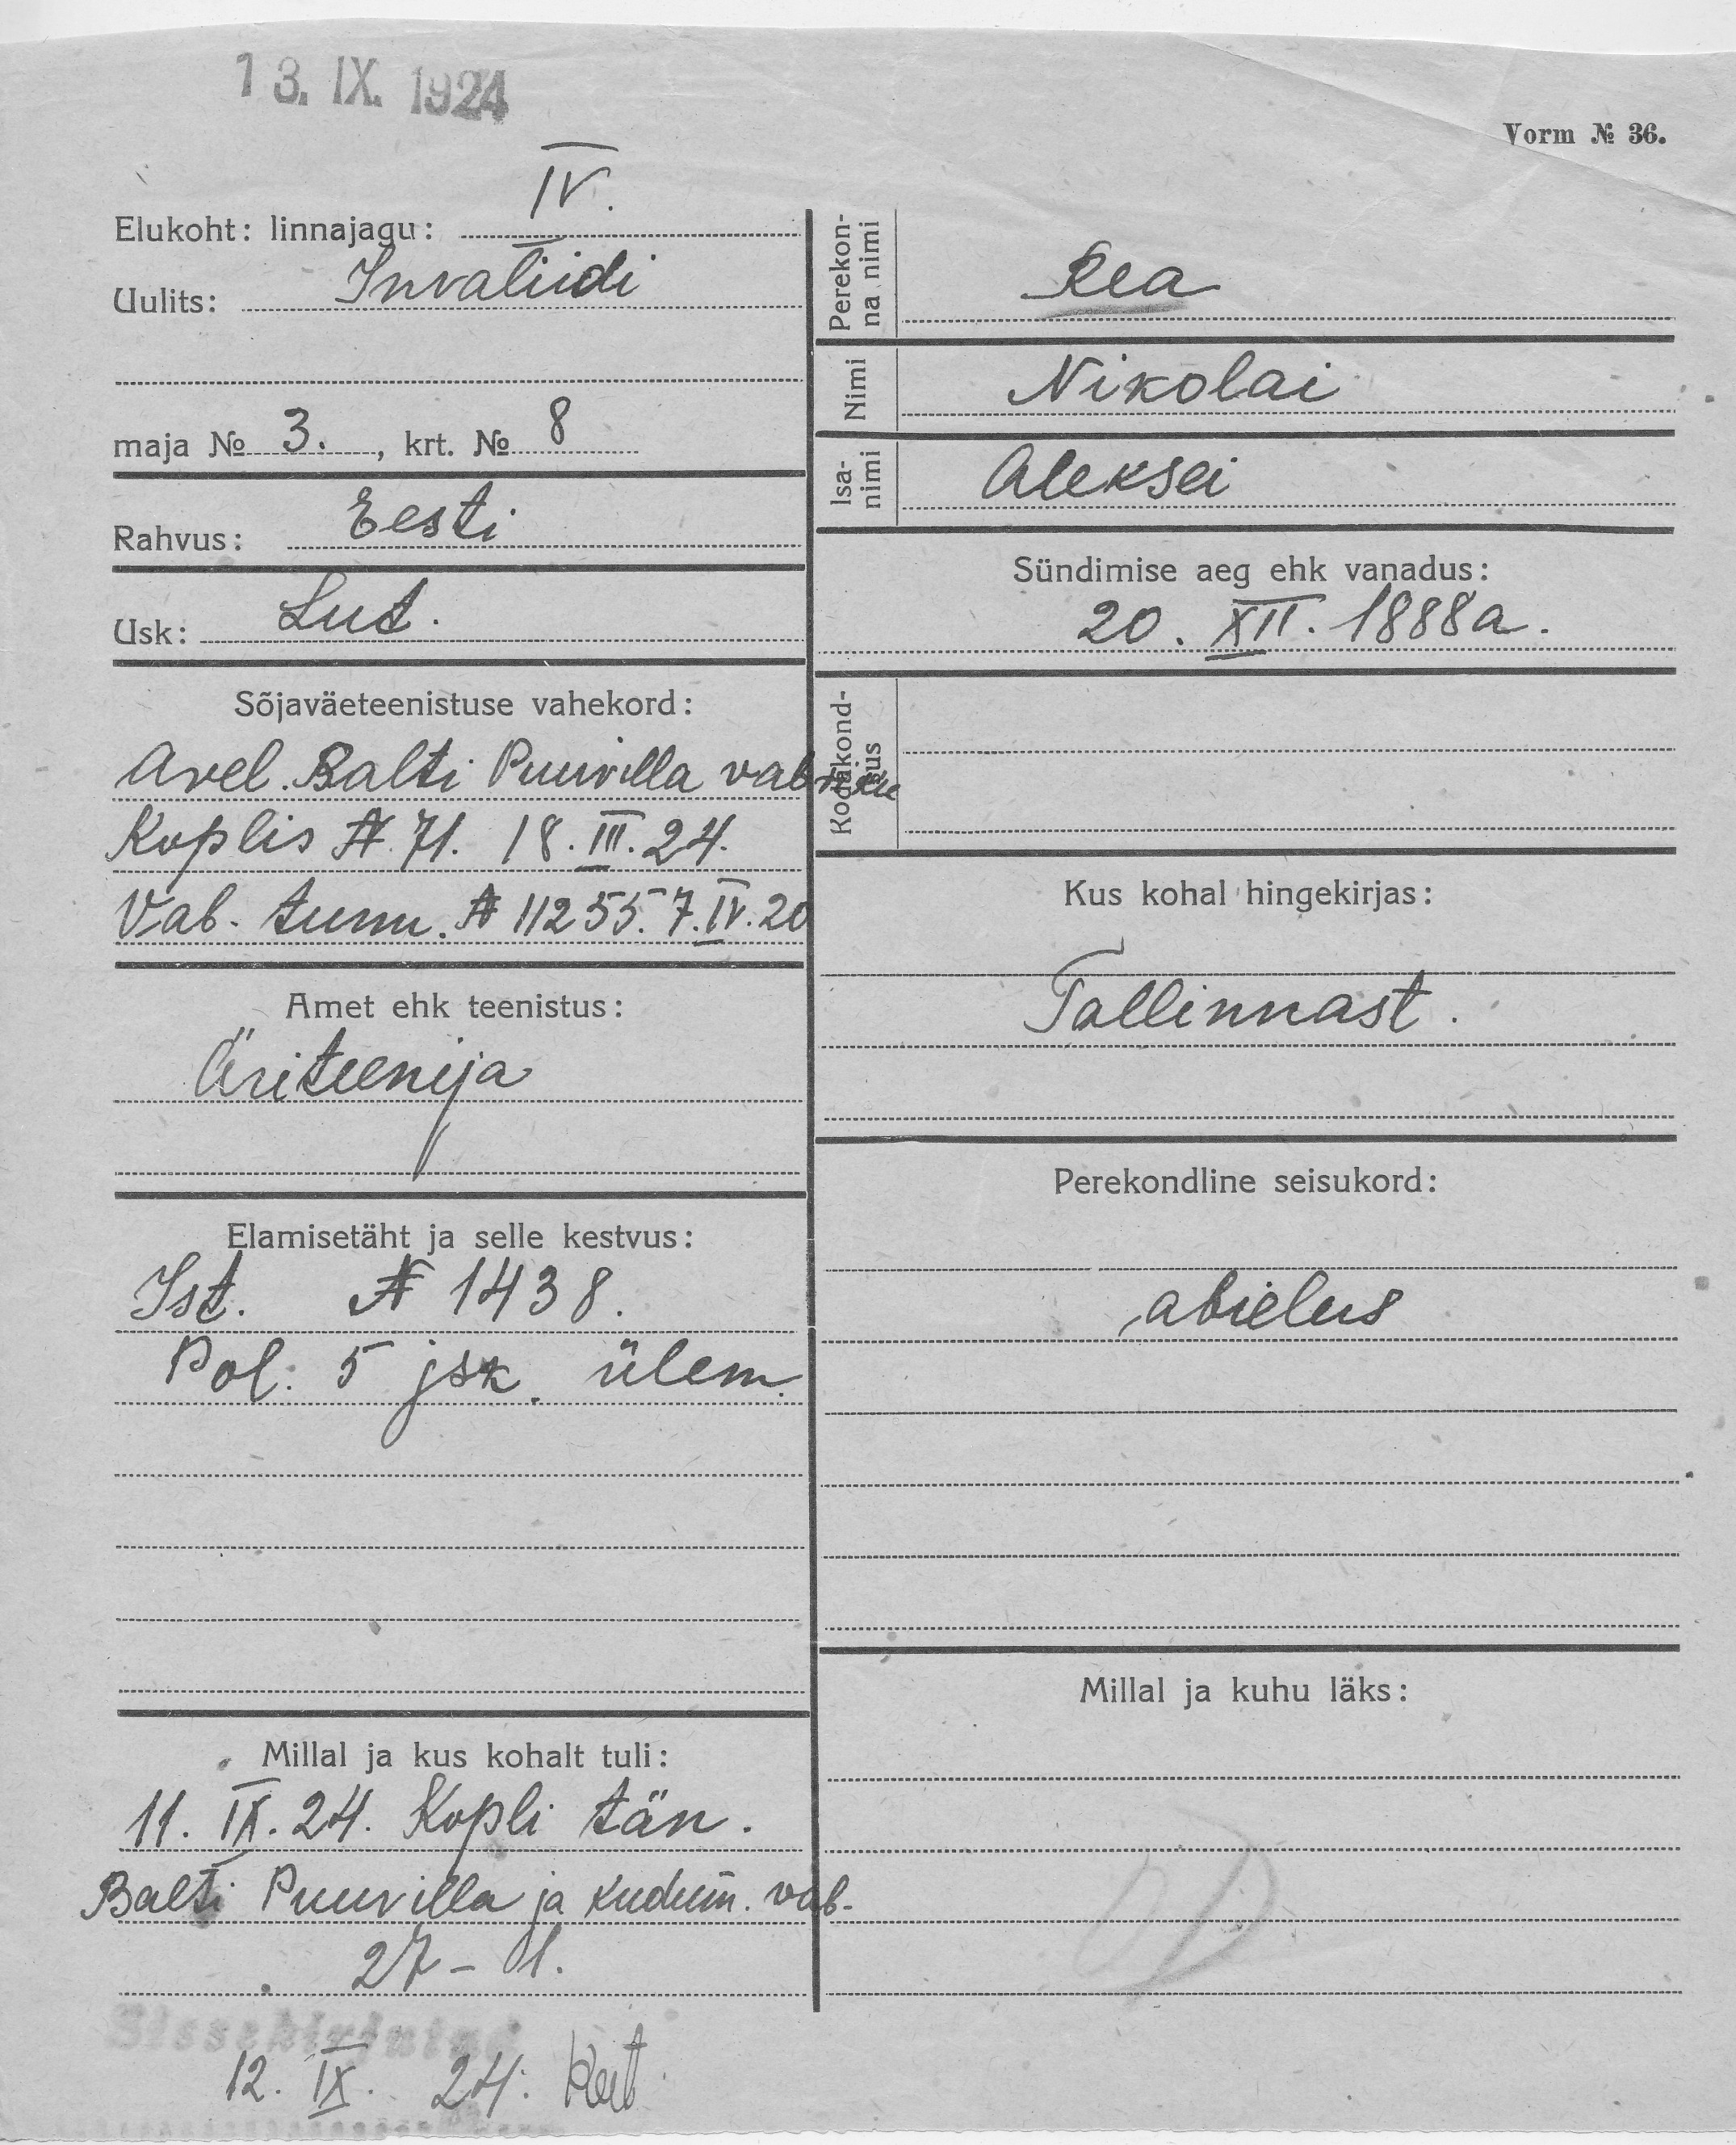 13. IX. 1924
Vorm № 36.
IV.
Elukoht: linnajagu:
Uulits: Invaliidi
maja № 3. , krt. № 8
Rahvus: Eesti
Usk: Lut.
Sõjaväeteenistuse vahekord:
Avel. Balti Puuvilla vabriku
Koplis № 71. 18. III. 24.
Vab. tunn. № 11255. 7. IV. 20
Amet ehk teenistus:
Äriteenija
Elamisetäht ja selle kestvus:
Ist. № 1438.
Pol. 5 jsk. ülem.
Millal ja kus kohalt tuli:
11. IX. 24. Kopli tän.
Balti Puuvilla ja kudum. vab-
27 - 1.
Sissekirjutud
12. IX. 24.
Perekon-
na nimi
Rea
Nimi Nikolai
Isa-
nimi
Aleksei
Sündimise aeg ehk vanadus:
20. XII. 1888a.
Kodakond-
sus
Kus kohal hingekirjas:
Tallinnast.
Perekondline seisukord:
abielus
Millal ja kuhu läks: